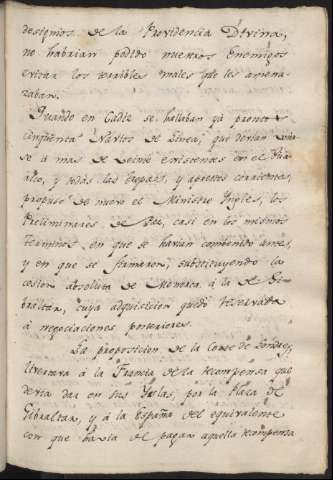 designios de la Providencia Divina,
no habrian podido nuestros Enemigos
evitar los terribles males que les amena
zaban.
Quando en Cadiz se hallaban ya prontos
cinquenta Navios de Linea, que devian unir
se à mas de veinte existentes en el Gua
rico, y todas las tropas, y aprestos
propuso de nuevo el Ministro Ingles, los
Preliminares de Paz, casi en los mismos
terminos en que se havian combenido antes,
y en que se firmaron, substituyendo la
cesion absoluta de Menorca à la de Gi-
braltar, cuya adquisicion quedó reservada
à negociaciones posteriores.
La proposicion de la Corte de Londres,
livertava à la Francia de la recompensa que
devia dar en sus Yslas, por la Plaza de
Gibraltar, y à la España del equivalente
con que havia de pagar aquella recompensa